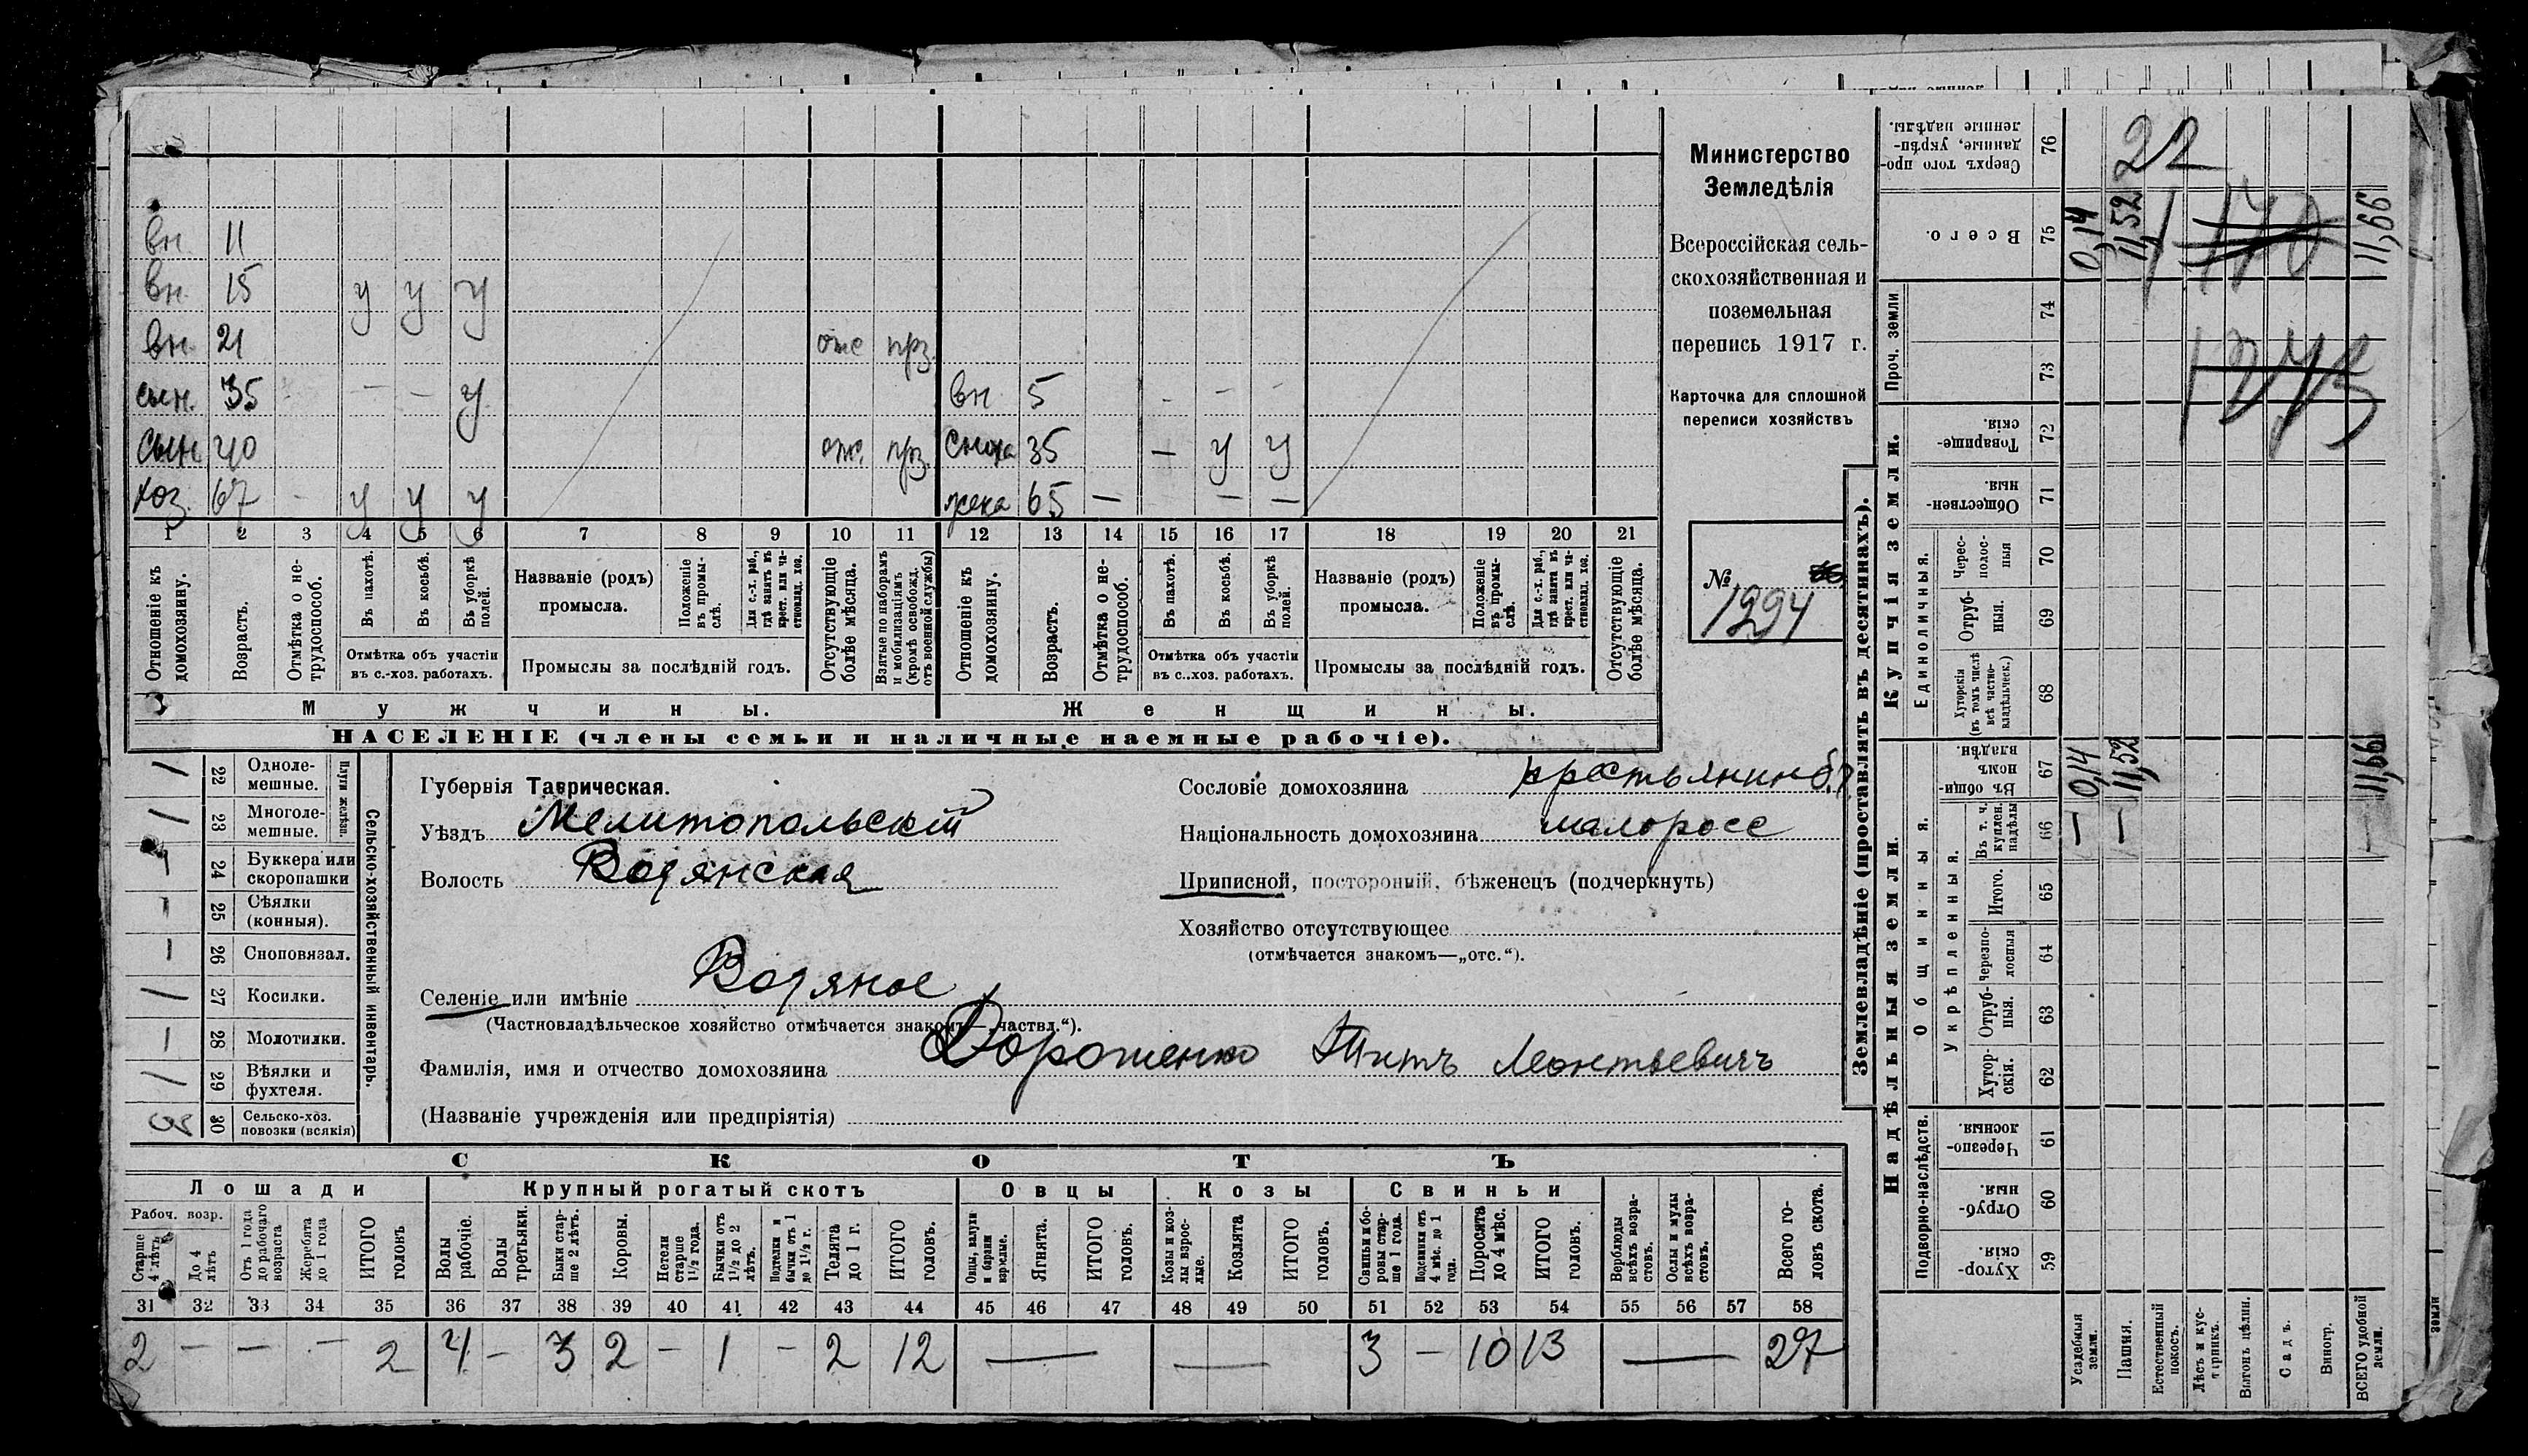 Министерство
Земледѣлія
Всероссійская сель-
скохозяйственная и
поземельная
перепись 1917 г.
Карточка для сплошной
переписи хозяйствъ
№
1294
вн. 11
вн. 15 у у у
вн. 21 отс прз.
сын. 35 - - у вн 5 - - -
сын. 40 отс. прз. сноха 35 — у у
хоз. 67 - у у у жена 65 — — —
1 2 3 4 5 6 7 8 9 10 11 12 13 14 15 16 17 18 19 20 21
Отношеніе къ домохозяину.
Возрастъ.
Отмѣтка о не-трудоспособ.
Въ пахотѣ.
Въ косьбѣ.
Въ уборкѣ полей.
Отмѣтка объ участіи въ с.-хоз. работахъ.
Названіе (родъ) промысла.
Положеніе въ промы-слѣ.
Для с.-х. раб., гдѣ занятъ въ крест. или ча-стновлад. хоз.
Промыслы за послѣдній годъ.
Отсутствующіе болѣе мѣсяца.
Взятые по наборамъ и мобилизаціямъ (кромѣ освобожд. отъ военной службы)
Отношеніе къ домохозяину.
Возрастъ.
Отмѣтка о не-трудоспособ.
Въ пахотѣ.
Въ косьбѣ.
Въ уборкѣ полей.
Отмѣтка объ участіи въ с..хоз. работахъ.
Названіе (родъ) промысла.
Положеніе въ промы-слѣ.
Для с.-х. раб., гдѣ занята въ крест. или ча-стновлад. хоз.
Промыслы за послѣдній годъ.
Отсутствующіе болѣе мѣсяца.
Мужчины. Женщины.
НАСЕЛЕНІЕ (члены семьи и наличные наемные рабочіе).
Сельско-хозяйственный инвентарь.
Плуги желѣзн.
1 22 Одноле-мешные.
1 23 Многоле-мешные.
24 Буккера или скоропашки
25 Сѣялки (конныя).
— 26 Сноповязал.
1 27 Косилки.
— 28 Молотилки.
1 29 Вѣялки и фухтеля.
3 30 Сельско-хоз. повозки (всякія)
Губернія Таврическая.
Уѣздъ Мелитопольскій
Волость Водянская
Селеніе или имѣніе Водяное
(Частновладѣльческое хозяйство отмѣчается знакомъ—„частвл.“).
Фамилія, имя и отчество домохозяина Дорошенко Титъ Леонтьевичъ
(Названіе учрежденія или предпріятія)
Сословіе домохозяина крестьянинъ
Національность домохозяина малоросс
Приписной, посторонній, бѣженецъ (подчеркнуть)
Хозяйство отсутствующее
(отмѣчается знакомъ—„отс.“).
СКОТЪ
Лошади Крупный рогатый скотъ Овцы Козы Свиньи
Рабоч. возр.
Старше 4 лѣтъ
До 4 лѣтъ
Отъ 1 года до рабочаго возраста
Жеребята до 1 года
ИТОГО головъ
Волы рабочіе.
Волы третьяки.
Быки стар-ше 2 лѣтъ.
Коровы.
Нетели старше 1½ года.
Бычки отъ 1½ до 2 лѣтъ.
Подтелки и бычки отъ 1 до 1½ г.
Телята до 1 г.
ИТОГО головъ.
Овцы, валухи и бараны взрослые.
Ягнята.
ИТОГО головъ.
Козы и коз-лы взрос-лые.
Козлята
ИТОГО головъ.
Свиньи и бо-ровы стар-ше 1 года.
Подсвинки отъ 4 мѣс. до 1 года.
Поросята до 4 мѣс.
ИТОГО головъ.
Верблюды всѣхъ возра-стовъ.
Ослы и мулы всѣхъ возра-стовъ.
Всего го-ловъ скота.
31 32 33 34 35 36 37 38 39 40 41 42 43 44 45 46 47 48 49 50 51 52 53 54 55 56 57 58
2 — — — 2 4 - 3 2 - 1 - 2 12 — — 3 — 10 13 — 27
Землевладѣніе (проставлять въ десятинахъ).
Надѣльныя земли.
Купчія земли.
Проч. земли
Подворно-наслѣдств.
Общинныя.
Укрѣпленныя.
Единоличныя.
Сверхъ того про-данные, укрѣп-ленные надѣлы. 76
Всего. 75
74
73
Товарище-скія. 72
Обществен-ныя. 71
Черес-полос-ныя 70
Отруб-ныя. 69
Хуторскія (въ томъ числѣ всѣ частно-владѣльческ.) 68
Въ общи-номъ владѣн. 67
Въ т. ч. куплен. надѣлы 66
Итого. 65
Черезпо-лосныя 64
Отруб-ныя. 63
Хутор-скія. 62
Черезпо-лосныя. 61
Отруб-ныя. 60
Хутор-скія. 59
Усадебныя земли. — 0,14 0,14
Пашня. — 11,52 11,52
Естественный покосъ.
Лѣсъ и кус-тарникъ.
Выгонъ цѣлин.
Садъ.
Виногр.
ВСЕГО удобной земли. — 11,66 11,66
22